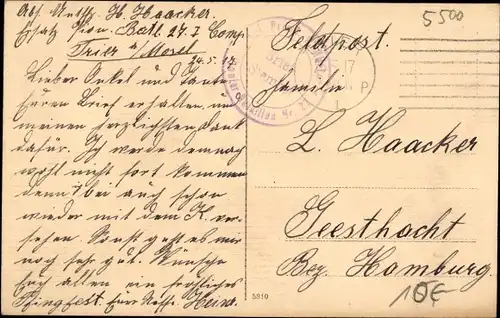 Abs. Untffz. H. Haacker.
Ersatz Pion. Batl. 27. I Comp.
Trier a/Mosel
24.5.17
Lieber Onkel und Tante
Euren Brief erhalten,
meinen herzlichsten Dank
dafür. Ich werde demnach
wohl nicht fort kommen
denn bei auch schon
wieder mit dem K. ver-
sehen. Sonst geht es mir
noch sehr gut. Wünsche
Euch allen ein fröhliches
Pfingfest. Euer Neffe. Hein.
Feldpost.
Familie
L. Haacker
Geesthacht
Bez. Hamburg
5500
10€
17
P
5910